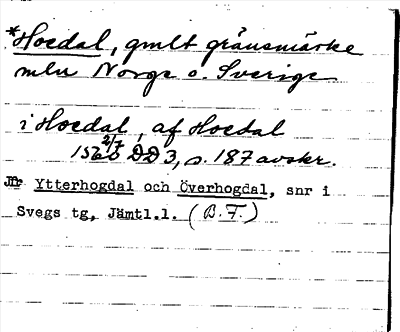 *Hoedal, gmlt gränsmärke
mln Norge o. Sverige
i Hoedal, af Hoedal
1560 2/7 DD 3, s. 187 avskr.
Jfr Ytterhogdal och Överhogdal, snr i
Svegs tg, Jämtl.l. (B.F.)